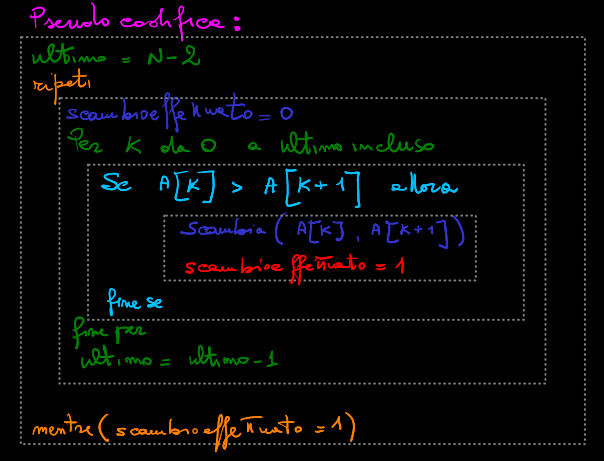 Pseudo codifica:
ultimo = N-2
ripeti
scambioeffettuato = 0
Per K da 0 a ultimo incluso
Se A[K] > A[K+1] allora
Scambia ( A[K] , A[K+1] )
scambioeffettuato = 1
fine se
fine per
ultimo = ultimo-1
mentre(scambioeffettuato = 1)